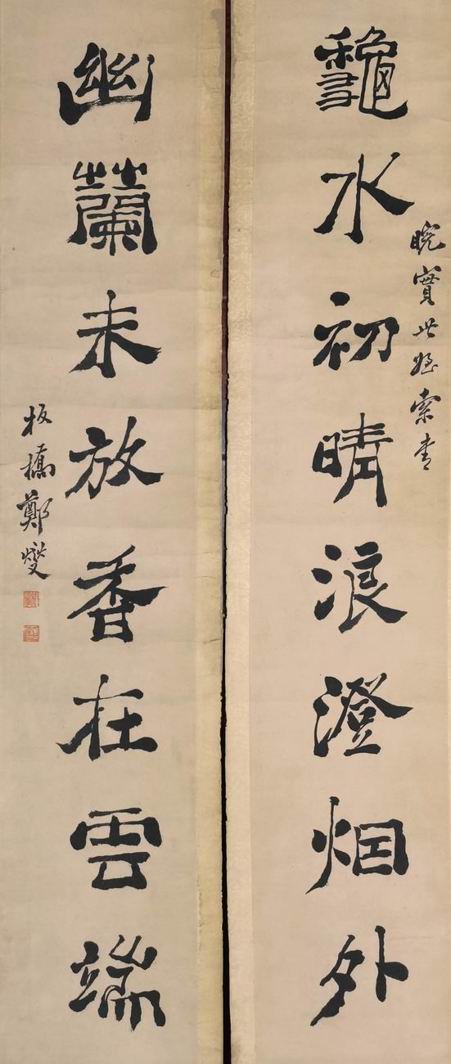 晥實世索書
龝水初晴浪澄烟外
幽蘭未放香在雲端
板橋鄭燮